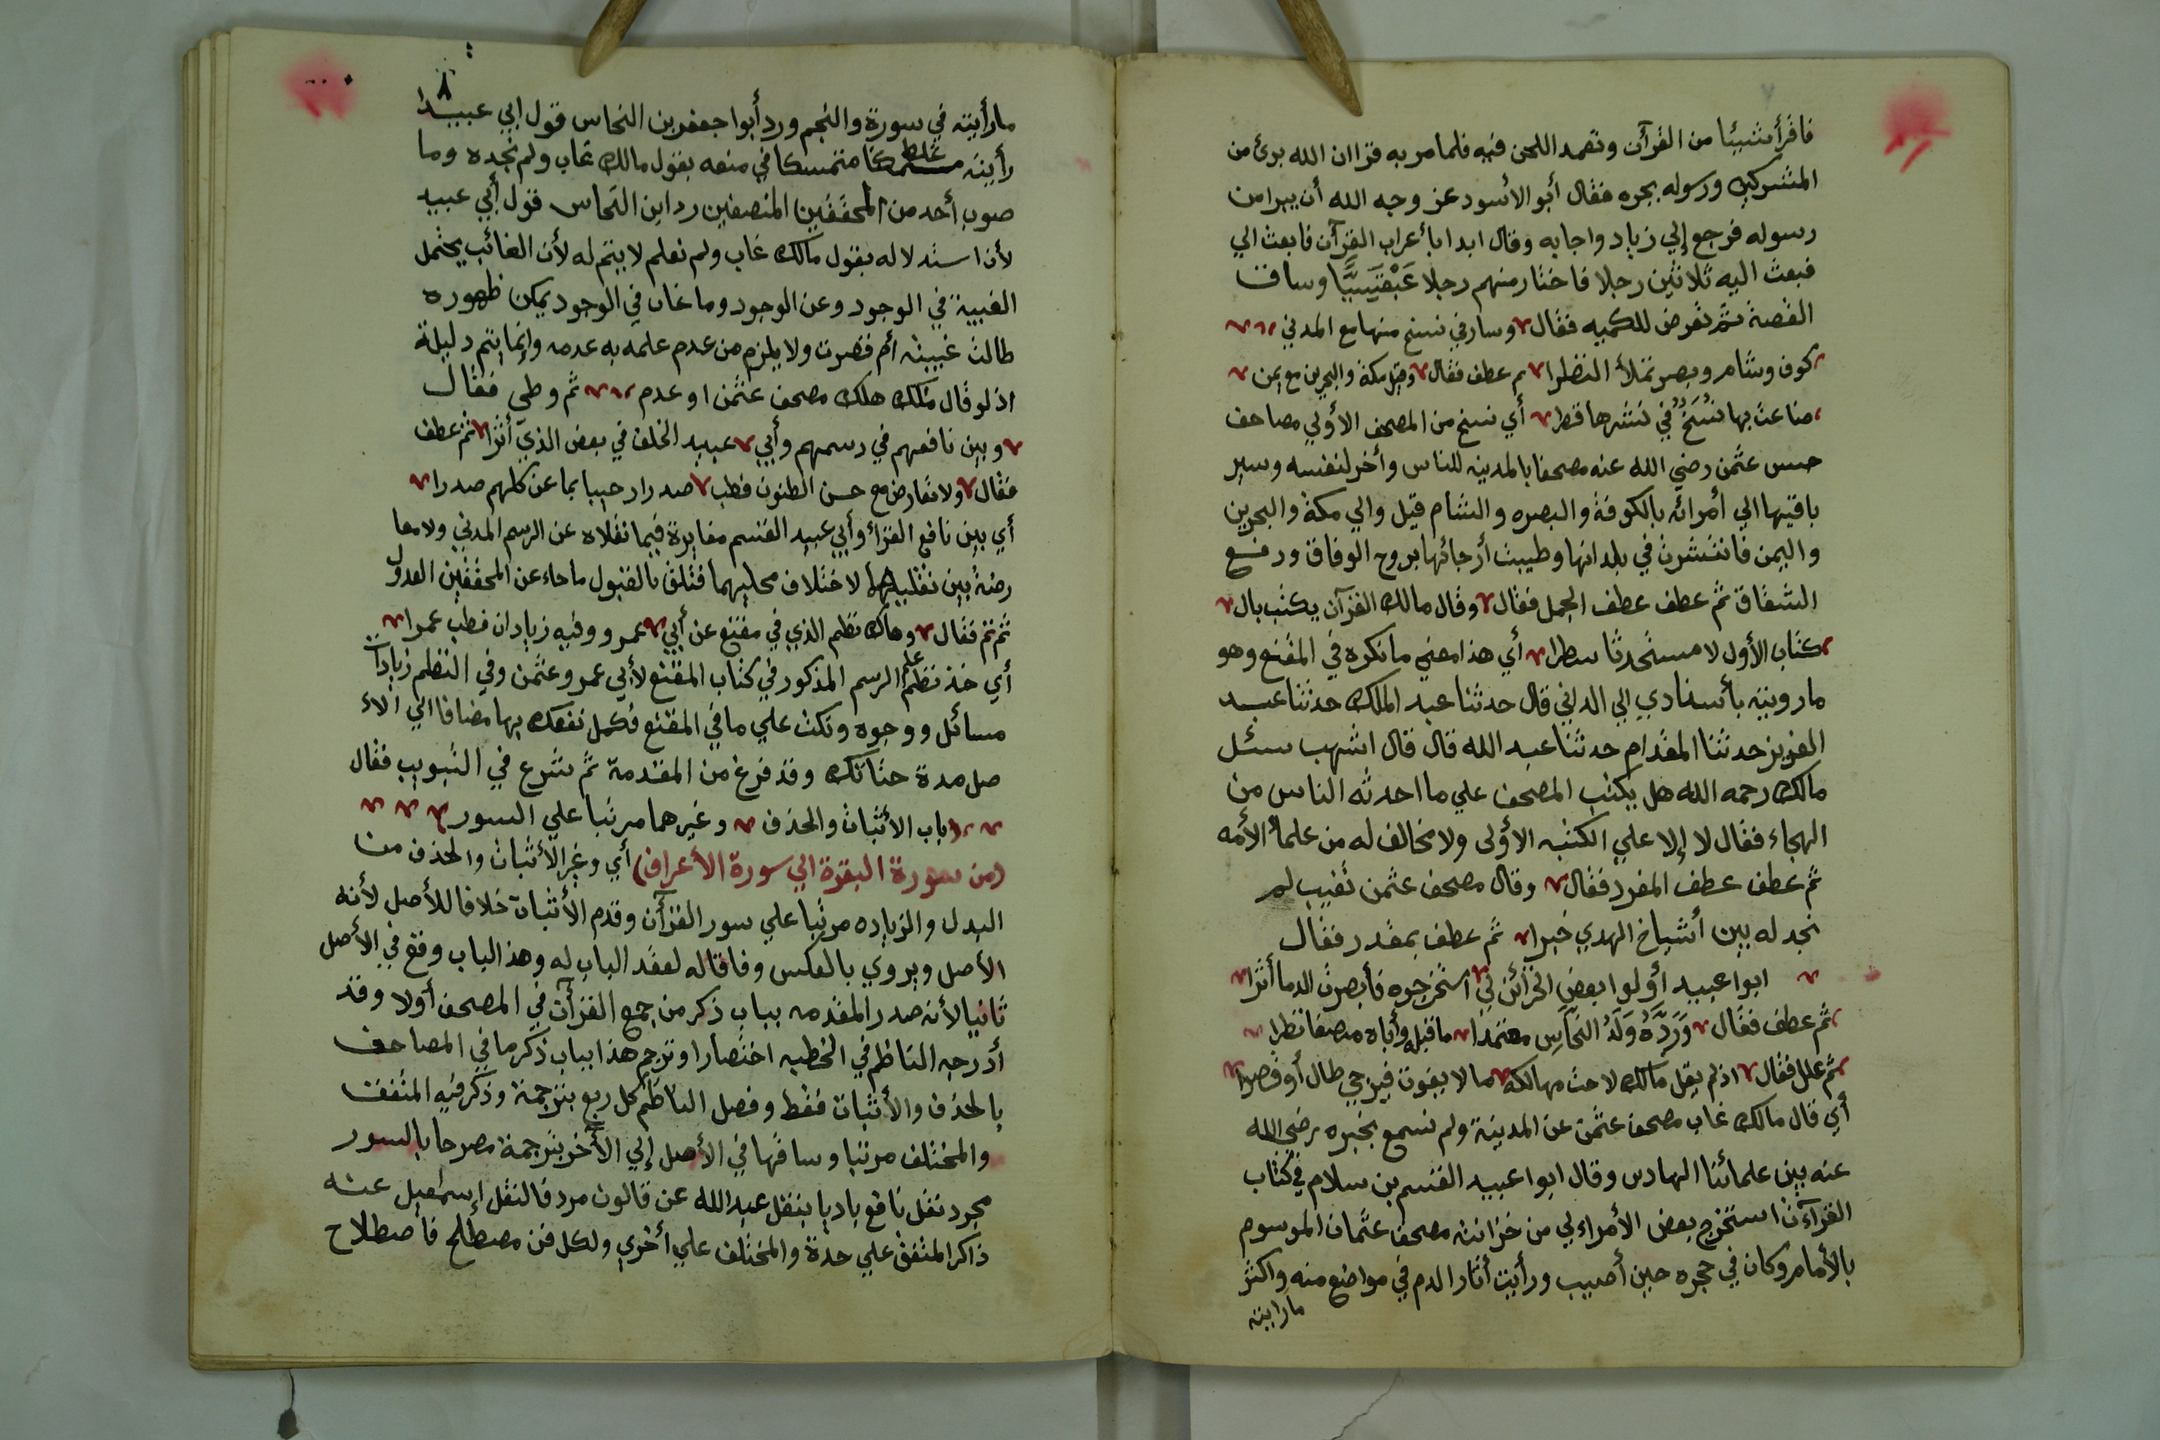 فاقرأ شيئا من القرآن وتعمد اللحن فيه فلما مر به قرا ان الله برئ من
المشركين ورسوله بجره فقال أبو الأسود عز وجه الله أن يبرا من
رسوله فرجع إلي زياد واجابه وقال ابدا بأعراب القرآن فابعث الي
فبعث اليه ثلاثين رجلا فاختار منهم رجلا عَبْقَسِيًّا وساق
القصة ثم تعرض للكميه فقال وسار في نسخ منها مع المدني
كوف وشام وبصر تملأ النظرا ثم عطف فقال وقيل مكة والبحرين مع يمن
ضاعت بها نُسَخٌ في نشرها قطرا أي نسخ من المصحف الأولي مصاحف
حبس عثمن رضي الله عنه مصحفا بالمدينه للناس وأخر لنفسه وسير
باقيها الي أمرائه بالكوفة والبصره والشام قيل والي مكة والبحرين
واليمن فانتشرت في بلدانها وطيبت أرجائها بروح الوفاق ورفع
الشقاق ثم عطف عطف الجمل فقال وقال مالك القرآن يكتب بال
كتاب الأول لا مستحدثا سطرا أي هذا معني ما نكره في المقنع وهو
ما رويته بأسنادي الي الداني قال حدثنا عبد الملك حدثنا عبد
العزيز حدثنا المقدام حدثنا عبد الله قال قال اشهب سئل
مالك رحمه الله هل يكتب المصحف علي ما احدثه الناس من
الهجاء فقال لا إلا علي الكتبه الأولى ولا مخالف له من علماء الأمه
ثم عطف عطف المفرد فقال وقال مصحف عثمن تغيب لم
نجد له بين أشياخ الهدي خبرا ثم عطف بمقدر فقال
ابوا عبيد أولوا بعض الخزائن لي استخرجوه فأبصرت الدما أثرا
ثم عطف فقال وَرَدَّهُ وَلَدُ النَّحاسِ معتمدا ما قبله وأباه منصفا نظرا
ثم علل فقال اذ لم يقل مالك لاحت مهالكه ما لا يفوت فيرجي طال أو قصرا
أي قال مالك غاب مصحف عثمن عن المدينة ولم نسمع بخبره رضي الله
عنه بين علمائنا الهادين وقال ابوا عبيد القسم بن سلام في كتاب
القرآءت استخرج بعض الأمراء لي من خزانته مصحف عثمان الموسوم
بالأمام وكان في حجره حين أصيب ورأيت أثار الدم في مواضع منه واكثر
ما رايته
٨
ما رأيته في سورة والنجم ورد أبوا جعفر بن النحاس قول ابي عبيدا
رأيته غلط متمسكا في منعه بقول مالك غاب ولم نجده وما
صوب أحد من المحققين المنصفين رد ابن النحاس قول أبي عبيد
لأن استدلاله بقول مالك غاب ولم نعلم لا يتم له لأن الغائب يحتمل
الغيبة في الوجود وعن الوجود وما غاب في الوجود يمكن ظهوره
طالت غيبته أم قصرت ولا يلزم من عدم علمه به عدمه وإنما يتم دليلة
اذ لو قال ملك هلك مصحف عثمن او عدم ثم وطي فقال
وبين نافعهم في رسمهم وأبي عبيد الخلف في بعض الذي أثرا ثم عطف
فقال ولا تعارض مع حسن الظنون فطب صدرا رحيبا بما عن كلهم صدرا
أي بين نافع القراء وأبي عبيد القسم مغايرة فيما نقلاه عن الرسم المدني ولا معا
رضة بين نقليهما لاختلاف محليهما فتلق بالقبول ما جاء عن المحققين العدول
ثم تمم فقال وهاك نظم الذي في مقنع عن أبي عمرو وفيه زيادات فطب عمرا
أي خذ نظم علم الرسم المذكور في كتاب المقنع لأبي عمرو عثمن وفي النظم زيادات
مسائل ووجوه ونكت علي ما في المقنع فكمل نفعك بها مضافا الي الاء
صل مدة حياتك وقد فرغ من المقدمة ثم شرع في التبويب فقال
(باب الأثبات والحذف وغيرهما مرتبا علي السور
(من سورة البقرة الي سورة الأعراف) أي وغير الأثبات والحذف من
البدل والزياده مرتبا علي سور القرآن وقدم الأثبات خلافا للأصل لأنه
الأصل ويروي بالعكس وفاقا له لعقد الباب له وهذا الباب وقع في الأصل
ثانيا لأنه صدر المقدمه بباب ذكر من جمع القرآن في المصحف أولا وقد
أدرجه الناظم في الخطبه اختصارا وترجم هذا بباب ذكر ما في المصاحف
بالحذف والأثبات فقط وفصل الناظم كل ربع بترجمة وذكر فيه المتفق
والمختلف مرتبا وساقها في الأصل إلي الآخر بترجمة مصرحا بالسور
مجرد نقل نافع باديا بنقل عبد الله عن قالون مردفا لنقل إسمعيل عنه
ذاكر المتفق علي حدة والمختلف علي أخري ولكل فن مصطلح فاصطلاح